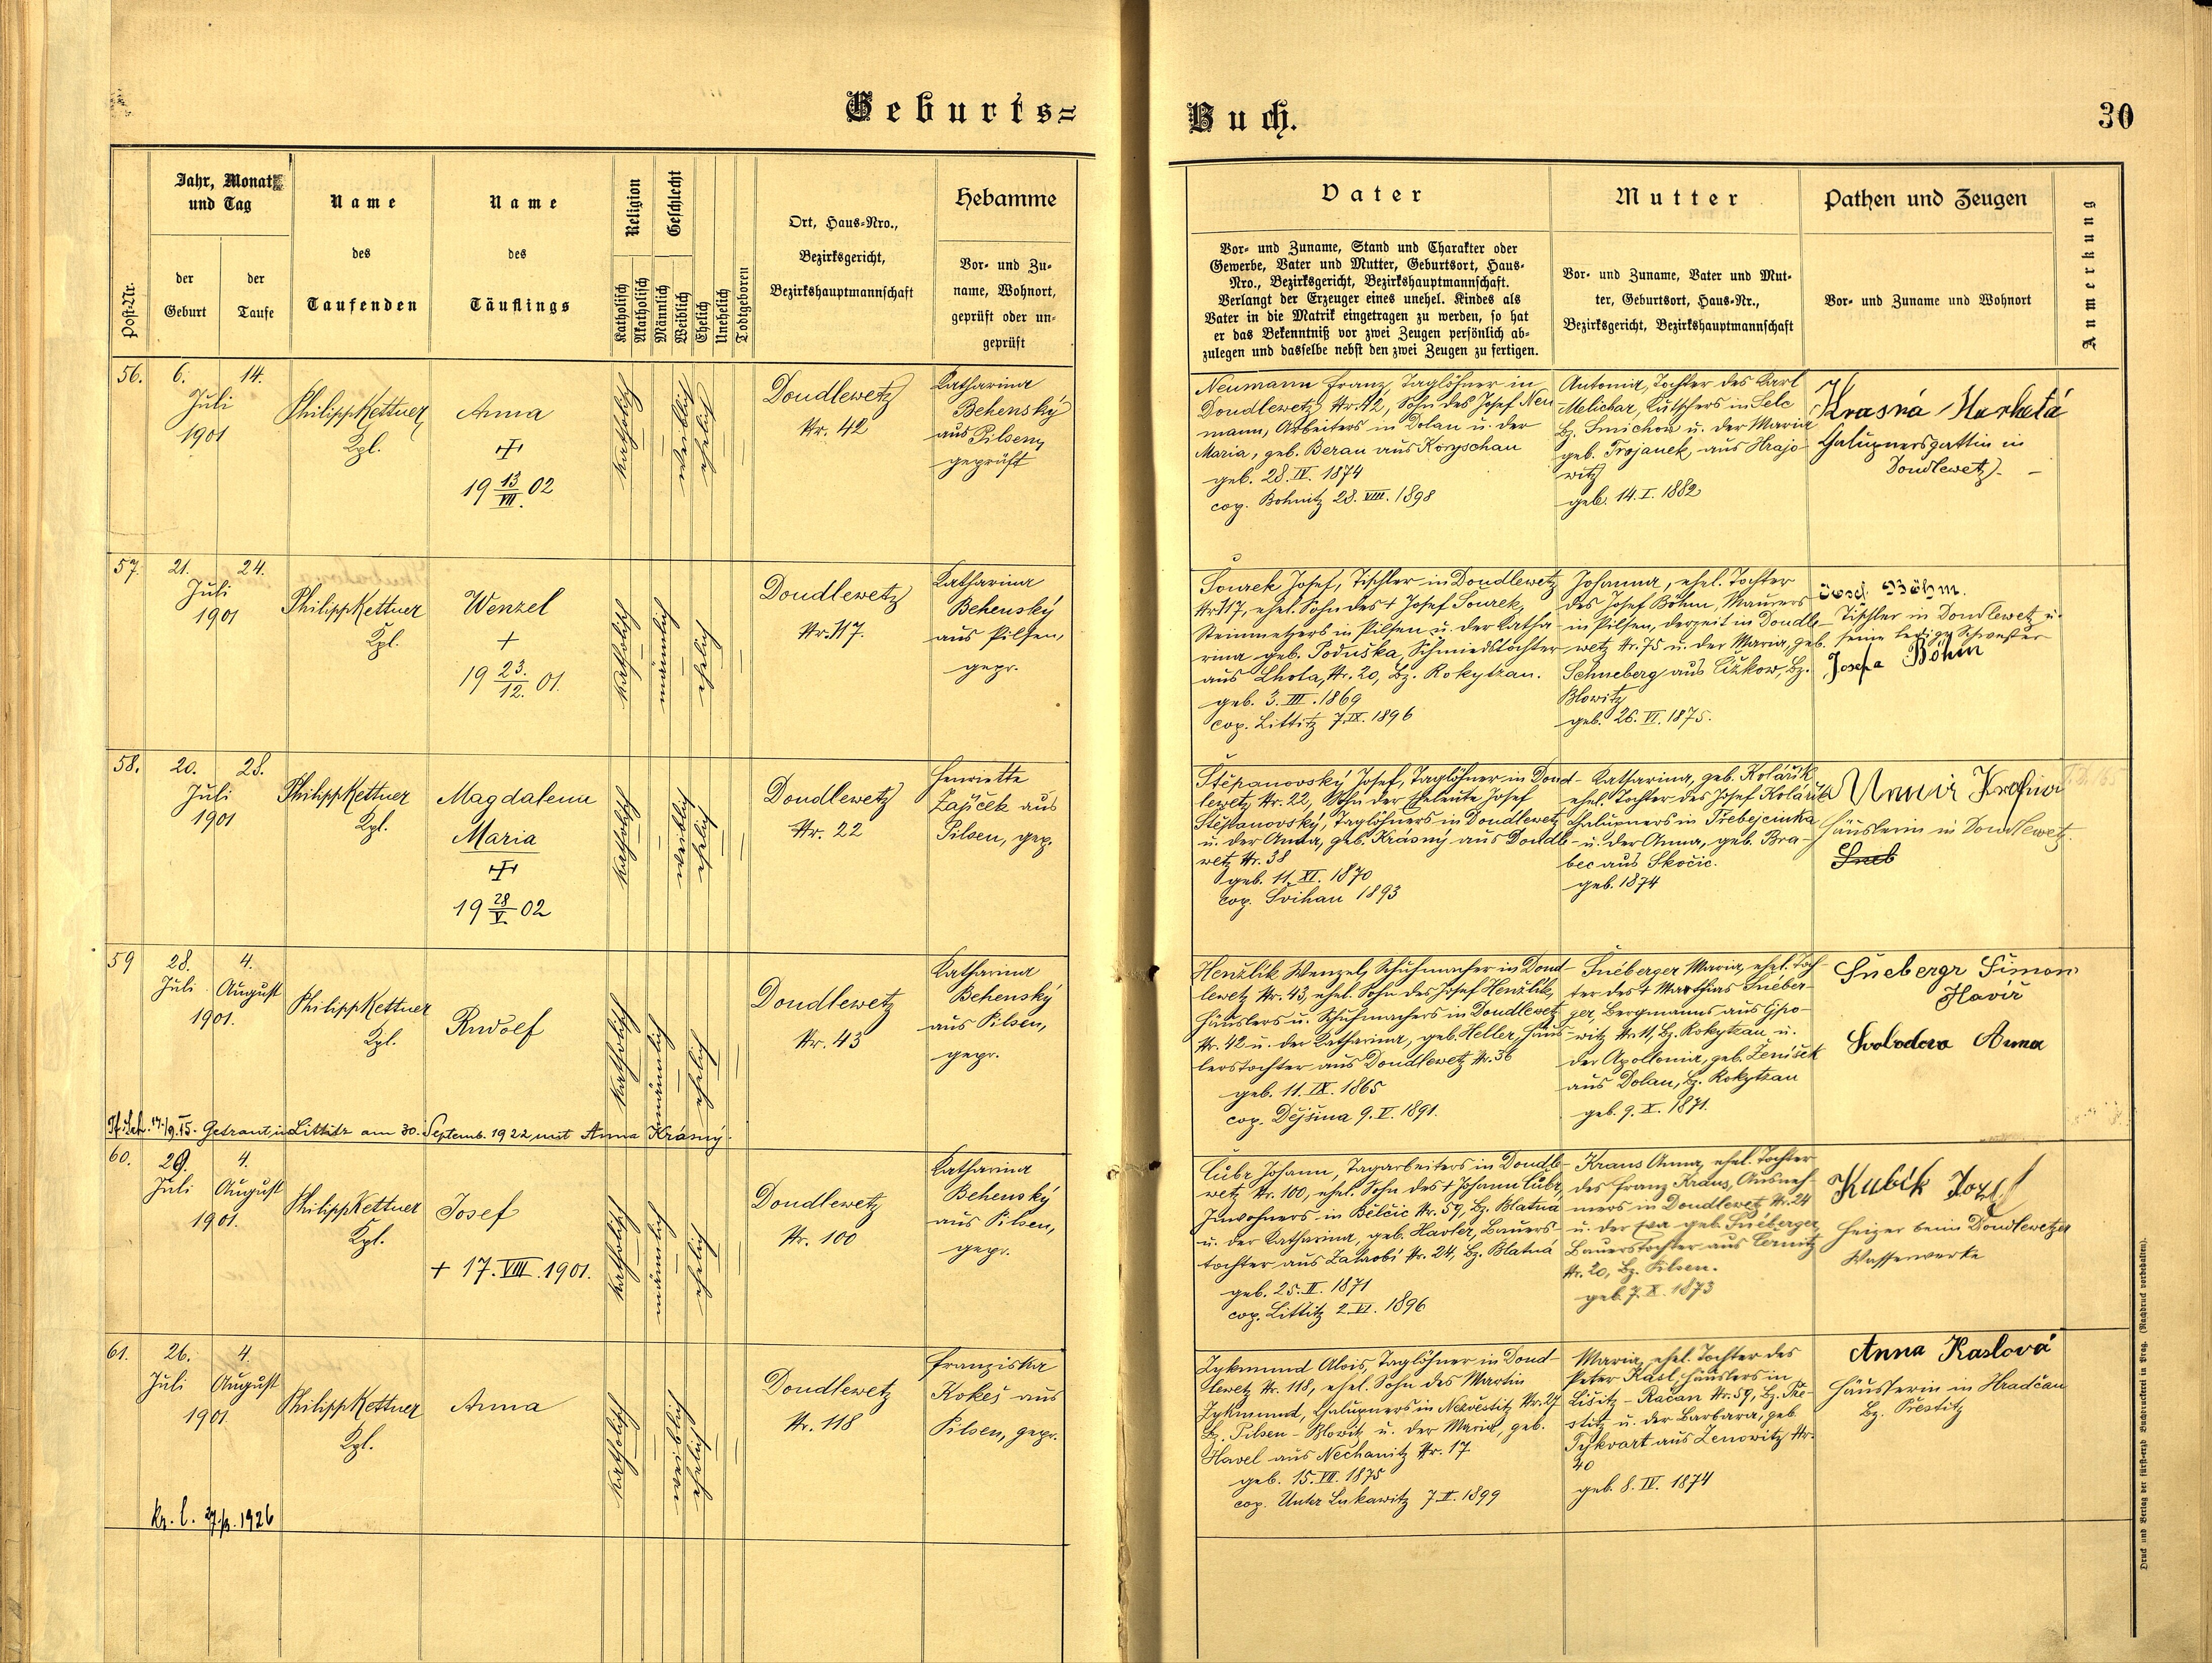 Geburts=
Buch.
30
Post-Nr.
Jahr, Monat
und Tag
der
Geburt
der
Taufe
Name
des
Taufenden
Name
des
Täuflings
Religion
Katholisch
Akatholisch
Geschlecht
Männlich
Weiblich
Ehelich
Unehelich
Todtgeboren
Ort, Haus-Nro.,
Bezirksgericht,
Bezirkshauptmannschaft
Hebamme
Vor- und Zu-
name, Wohnort,
geprüft oder un-
geprüft
Vater
Vor- und Zuname, Stand und Charakter oder
Gewerbe, Vater und Mutter, Geburtsort, Haus-
Nro., Bezirksgericht, Bezirkshauptmannschaft.
Verlangt der Erzeuger eines unehel. Kindes als
Vater in die Matrik eingetragen zu werden, so hat
er das Bekenntniß vor zwei Zeugen persönlich ab-
zulegen und dasselbe nebst den zwei Zeugen zu fertigen.
Mutter
Vor- und Zuname, Vater und Mut-
ter, Geburtsort, Haus-Nr.,
Bezirksgericht, Bezirkshauptmannschaft
Pathen und Zeugen
Vor- und Zuname und Wohnort
Anmerkung
56.
6.
14.
Juli
1901
Philipp Kettner
Kpl.
Anna
19 13/VII. 02
katholisch
weiblich
ehelich
Doudlewetz
Nr. 42
Katharina
Behenský
aus Pilsen,
geprüft
Neumann Franz, Taglöhner in
Doudlewetz Nr. 42, Sohn des Josef Neu-
mann, Arbeiters in Dolan u. der
Maria, geb. Beran aus
geb. 28. IV. 1874
cop. Bohnitz 28. VIII. 1898
Antonia, Tochter des Karl
Melichar, Kutschers in Selc
Bz. Smichow u. der Maria
geb. Trojanek, aus Hrajo-
witz
geb. 14. I. 1882
Krasná Marketa
Chalupnersgattin in
Doudlewetz. -
57.
21.
24.
Juli
1901
Philipp Kettner
Kpl.
Wenzel
+
19 23./12. 01.
katholisch
männlich
ehelich
Doudlewetz
Nr. 117.
Katharina
Behenský
aus Pilsen,
gepr.
Sourek Josef, Tischler in Doudlewetz
Nr. 117, ehel. Sohn des + Josef Sourek,
Steinmetzers in Pilsen u. der Katha-
rina geb. Poduška, Schmiedstochter
aus Lhota, Nr. 20, Bz. Rokytzan.
geb. 3. III. 1869
cop. Littitz 7. IX. 1896
Johanna, ehel. Tochter
des Josef Böhm, Maurers
in Pilsen, derzeit in Doudle-
wetz Nr. 75 u. der Maria, geb.
Schneberg aus Čižkow, Bz.
Blowitz
geb. 26. VI. 1875.
Josef Böhm.
Tischler in Doudlewetz u.
seine ledige Schwester
Josefa Böhm
58.
20.
28.
Juli
1901
Philipp Kettner
Kpl.
Magdalena
Maria
19 28/V. 02
katholisch
weiblich
ehelich
Doudlewetz
Nr. 22
Henriette
Zajíček aus
Pilsen, gep.
Štěpanovský Josef, Taglöhner in Doud-
lewetz Nr. 22, Sohn der Eheleute Josef
Štěpanovský, Taglöhners in Doudlewetz
u. der Anna, geb. Krásný aus Doudle-
wetz Nr. 38
geb. 11. XI. 1870
cop. Svihau 1893
Katharina, geb. Kolářik
ehel. Tochter des Josef Kolářik
Chalupners in Třebejcinka
u. der Anna, geb. Bra-
bec aus Skočic.
geb. 1874
Häuslerin in Doudlewetz.
59
28.
4.
Juli
August
1901.
Philipp Kettner
Kpl.
Rudolf
katholisch
männlich
ehelich
Doudlewetz
Nr. 43
Katharina
Behenský
aus Pilsen,
gepr.
Henžlik Wenzel, Schuhmacher in Doud-
lewetz Nr. 43, ehel. Sohn des Josef Henžlik,
Häuslers u. Schuhmachers in Doudlewetz
Nr. 42 u. der Katharina, geb. Heller, Häus-
lerstochter aus Doudlewetz Nr. 36
geb. 11. IX. 1865
cop. Dejšina 9. V. 1891.
Šnéberger Maria, ehel. Toch-
ter des + Matthias Šnéber-
ger, Bergmanns aus
witz Nr. 11, Bz. Rokytzan u.
der Apollonia, geb. Ženišek
aus Dolan, Bz. Rokytzan
geb. 9. X. 1871.
Šnebergr Šimon
Havíř
Svobodova Anna
Getraut in Littitz am 30. Septemb. 1922 mit Anna Krásný.
60.
29.
4.
Juli
August
1901.
Philipp Kettner
Kpl.
Josef
+ 17. VIII. 1901.
katholisch
männlich
ehelich
Doudlewetz
Nr. 100
Katharina
Behenský
aus Pilsen,
gepr.
Čubr Johann, Tagarbeiters in Doudle-
wetz Nr. 100, ehel. Sohn des + Johann Čubr,
Inwohners in Bělčic Nr. 59, Bz. Blatna
u. der Katharina, geb. Havler, Bauers-
tochter aus Nr. 24, Bz. Blatná
geb. 25. II. 1871
cop. Littitz 2. VI. 1896
Kraus Anna, ehel. Tochter
des Franz Kraus, Ausneh-
mers in Doudlewetz Nr. 24
u. der Eva geb. Šnéberger
Bauerstochter aus Černitz
Nr. 20, Bz. Pilsen.
geb. 7. X. 1873
Kubík Josef
Heizer beim Doudlewetzer
Wasserwerke
61.
26.
4.
Juli
August
1901
Philipp Kettner
Kpl.
Anna
katholisch
weiblich
ehelich
Doudlewetz
Nr. 118
Franziska
Kokeš aus
Pilsen, gepr.
Zykmund Alois, Taglöhner in Doud-
lewetz Nr. 118, ehel. Sohn des Martin
Zykmund, Chalupners in Nezvěstitz Nr. 27
Bz. Pilsen - Blowitz u. der Maria, geb.
Havel aus Nechanitz Nr. 17
geb. 15. VII. 1875
cop. Unter Lukawitz 7. II. 1899
Maria, ehel. Tochter des
Peter Kasl, Häuslers in
Lišitz - Račan Nr. 59, Bz. Pře-
stitz u. der Barbara, geb.
Tykvart aus Zenowitz Nr.
40
geb. 8. IV. 1874
Anna Kaslová
Häuslerin in Hradčan
Bz. Přestitz
1926
Druck und Verlag der fürst-erzb. Buchdruckerei in Prag. (Nachdruck vorbehalten).